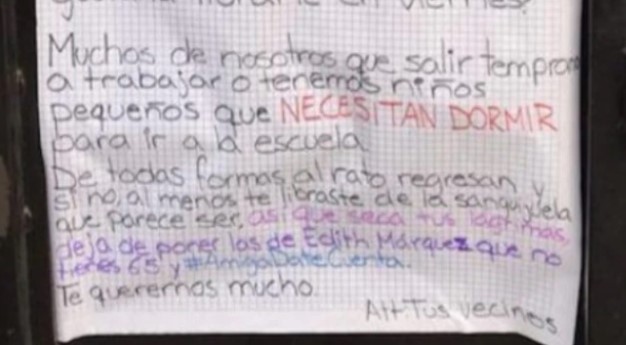 en viernes.
Muchos de nosotros que salir tempran
a trabajar o tenemos niños
pequeños que NECESITAN DORMIR
para ir a la escuela
De todas formas, al rato regresan y
si no, al menos te libraste de la sanguijuela
que parece ser, así que seca tus lágrimas,
deja de poner las de Edith Márquez que no
tienes 65 y #AmigaDateCuenta.
Te queremos mucho.
Att. Tus vecinos